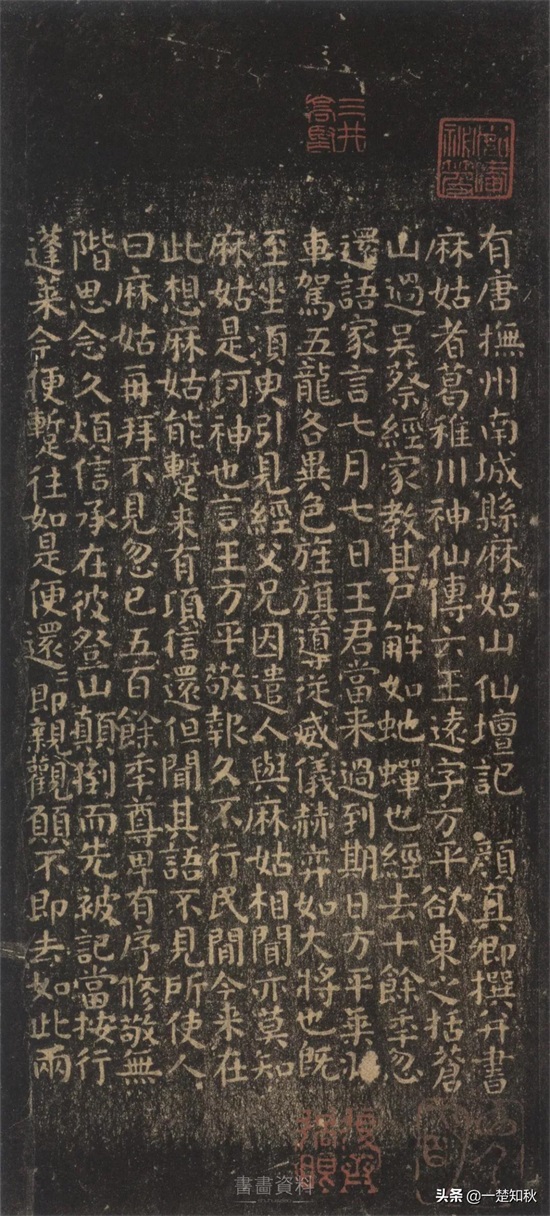 三井高堅
有唐撫州南城縣麻姑山仙壇記 顏真卿撰并書
麻姑者葛稚川神仙傳云王遠字方平欲東之括蒼
山過吳蔡經家教其尸解如虵蟬也經去十餘季忽
還語家言七月七日王君當来過到期日方平乘
車駕五龍各異色旌旗導従威儀赫弈如大將也既
至坐須臾引見經父兄因遣人與麻姑相聞亦莫知
麻姑是何神也言王方平敬報久不行民間今来在
此想麻姑能蹔来有頃信還但聞其語不見所使人
曰麻姑再拜不見忽已五百餘季尊卑有序修敬無
階思念久煩信承在彼登山顛倒而先被記當按行
蓬萊今便蹔往如是便還〻即親覲願不即去如此兩
書畫資料
头条 @一楚知秋